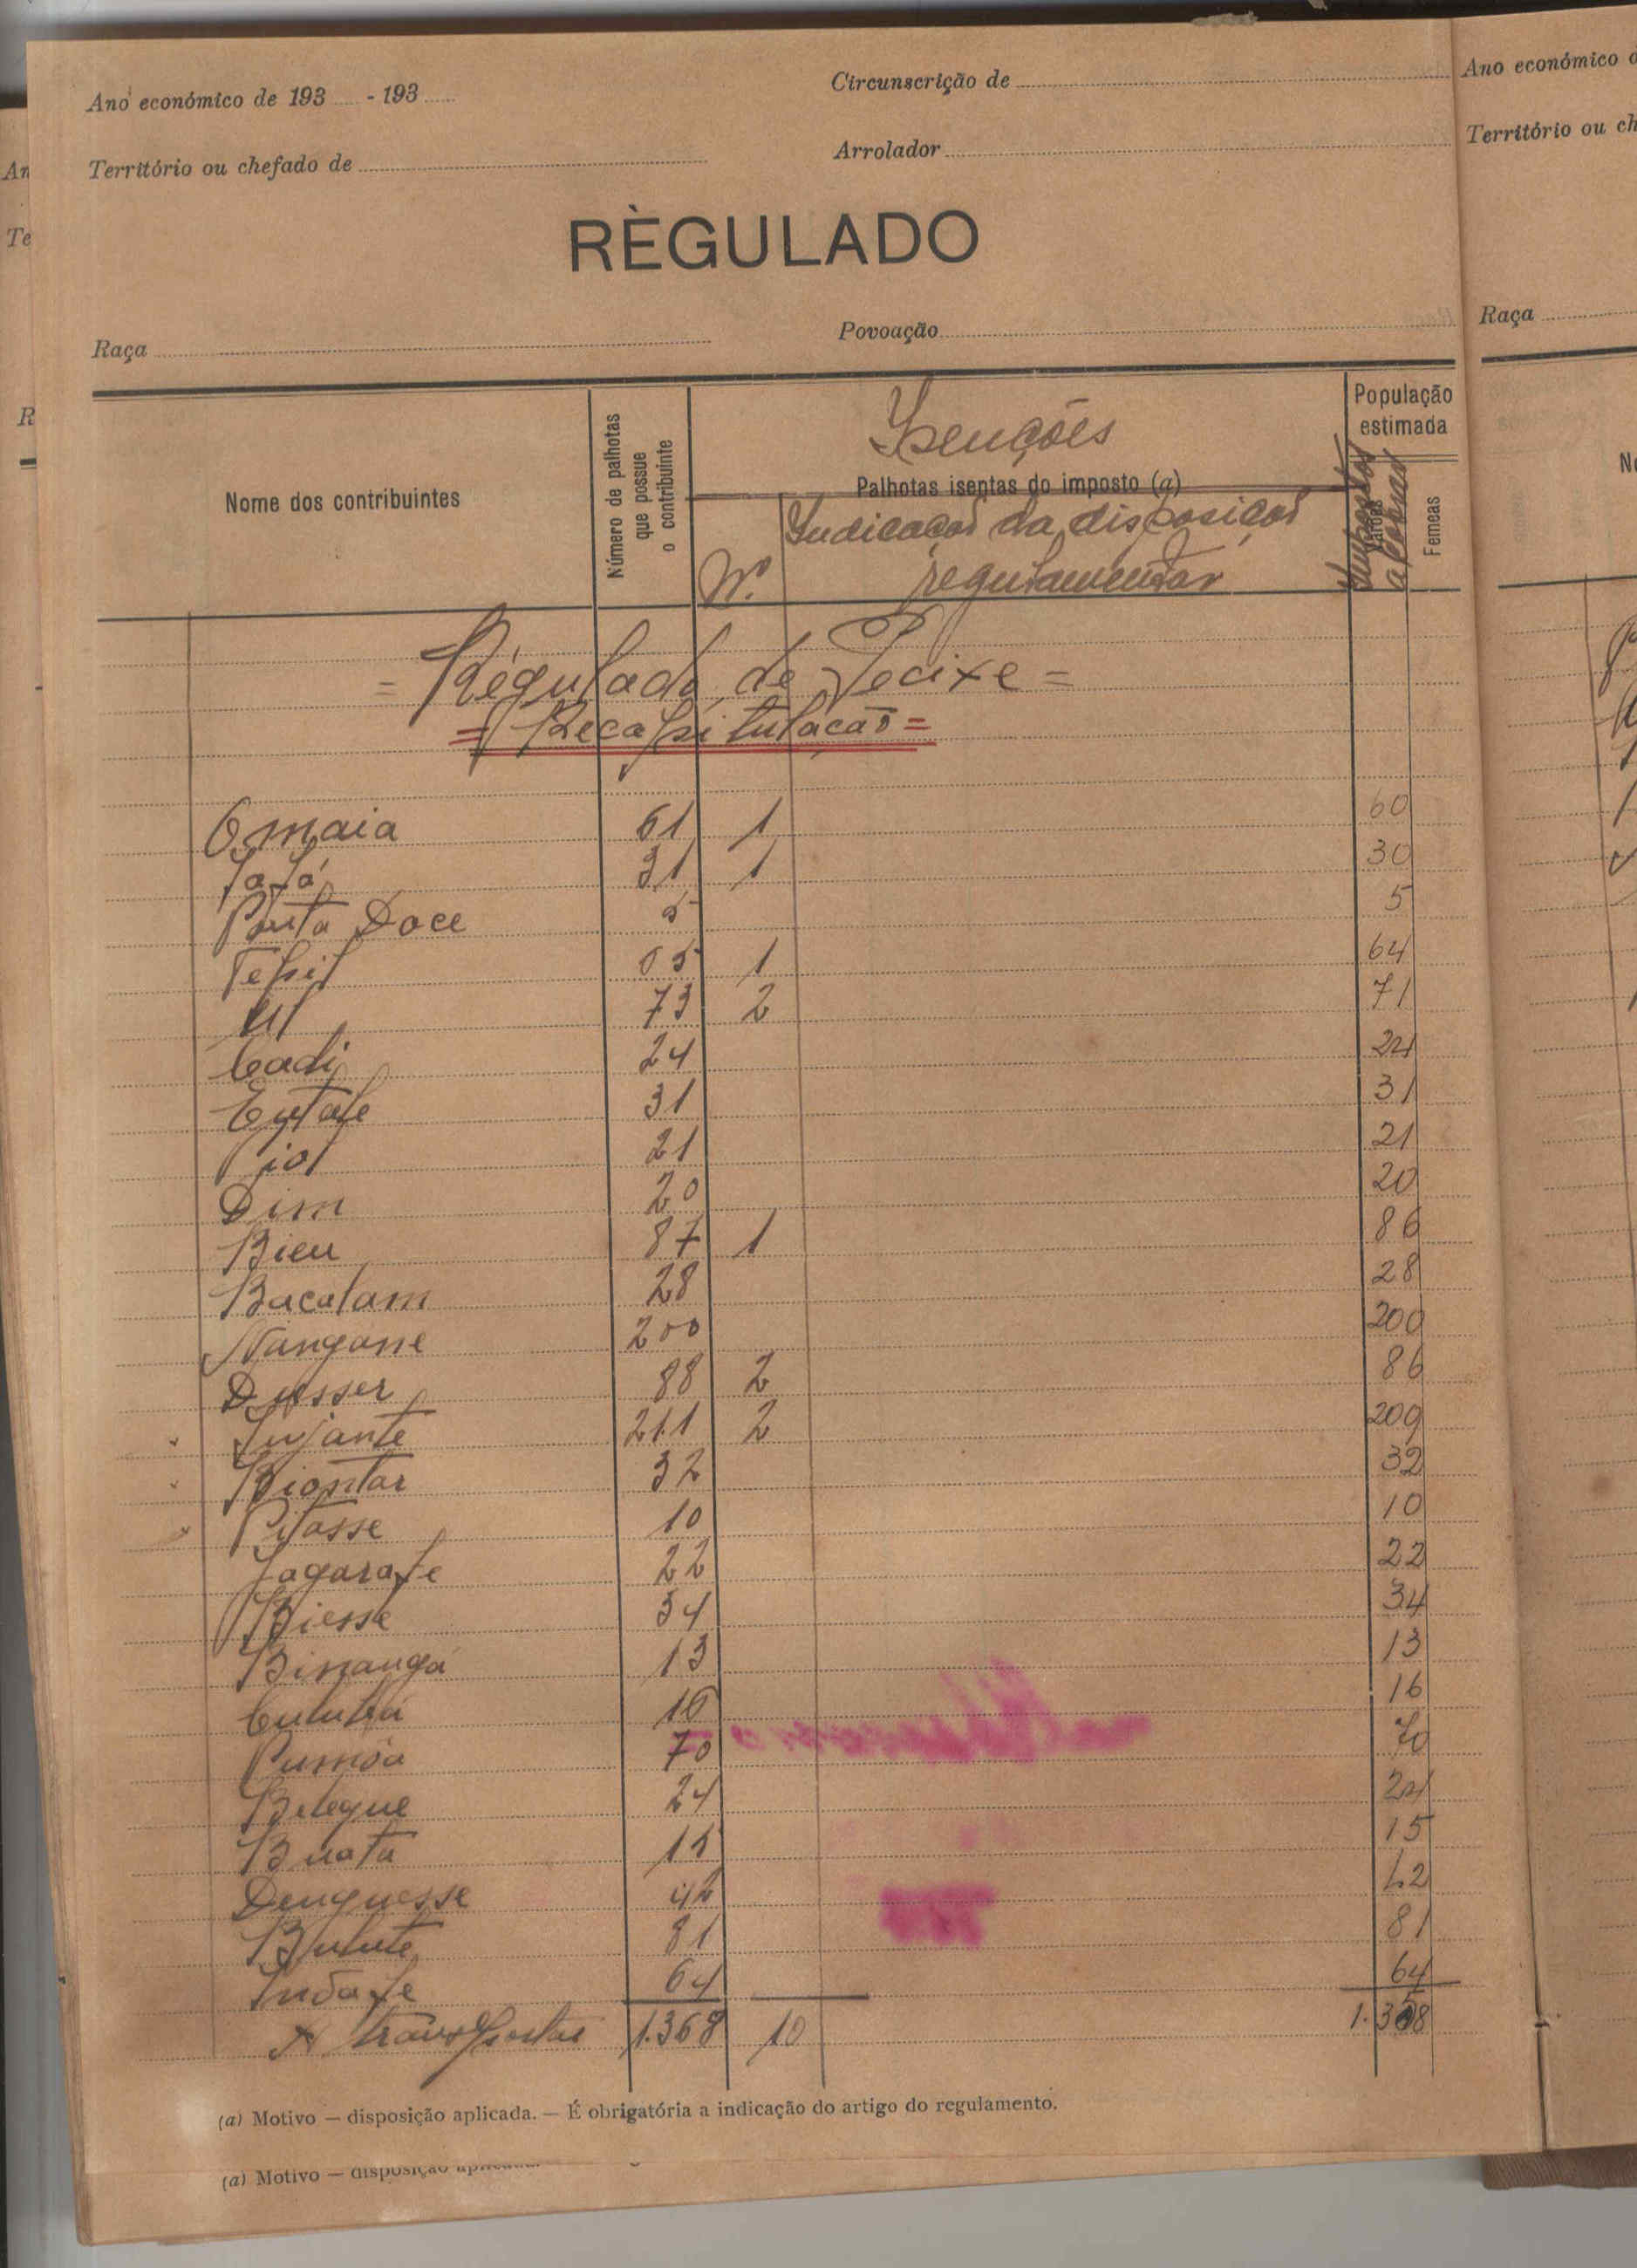 Ano económico de 193 - 193
Circunscrição de
Território ou chefado de
Arrolador
RÈGULADO
Raça
Povoação
Nome dos contribuintes
Número de palhotas que possue o contribuinte
Isenções
Palhotas iseptas do imposto (a)
Nº.
Indicação da disposição
regulamentar
População estimada
Impostos a cobrar
Varões
Femeas
= Régulado de Pecixe =
= Recapitulação =
Omaia 61 1 60
31 1 30
Ponta Doce 5 5
65 1 64
73 2 71
Cadi 24 24
31 31
21 21
Dim 20 20
Bieu 87 1 86
Bacalam 28 28
Nangane 200 200
Dusser 88 2 86
211 2 209
Biontar 32 32
10 10
Jagarafe 22 22
Biesse 34 34
Binanga 13 13
16 16
Pumóa 70 70
Belegue 24 24
Buata 15 15
Denguesse 42 42
81 81
64 64
A transportar 1.368 10 1.358
(a) Motivo — disposição aplicada. — É obrigatória a indicação do artigo do regulamento.
(a) Motivo — disposição
Ano económico
Território ou ch
Raça